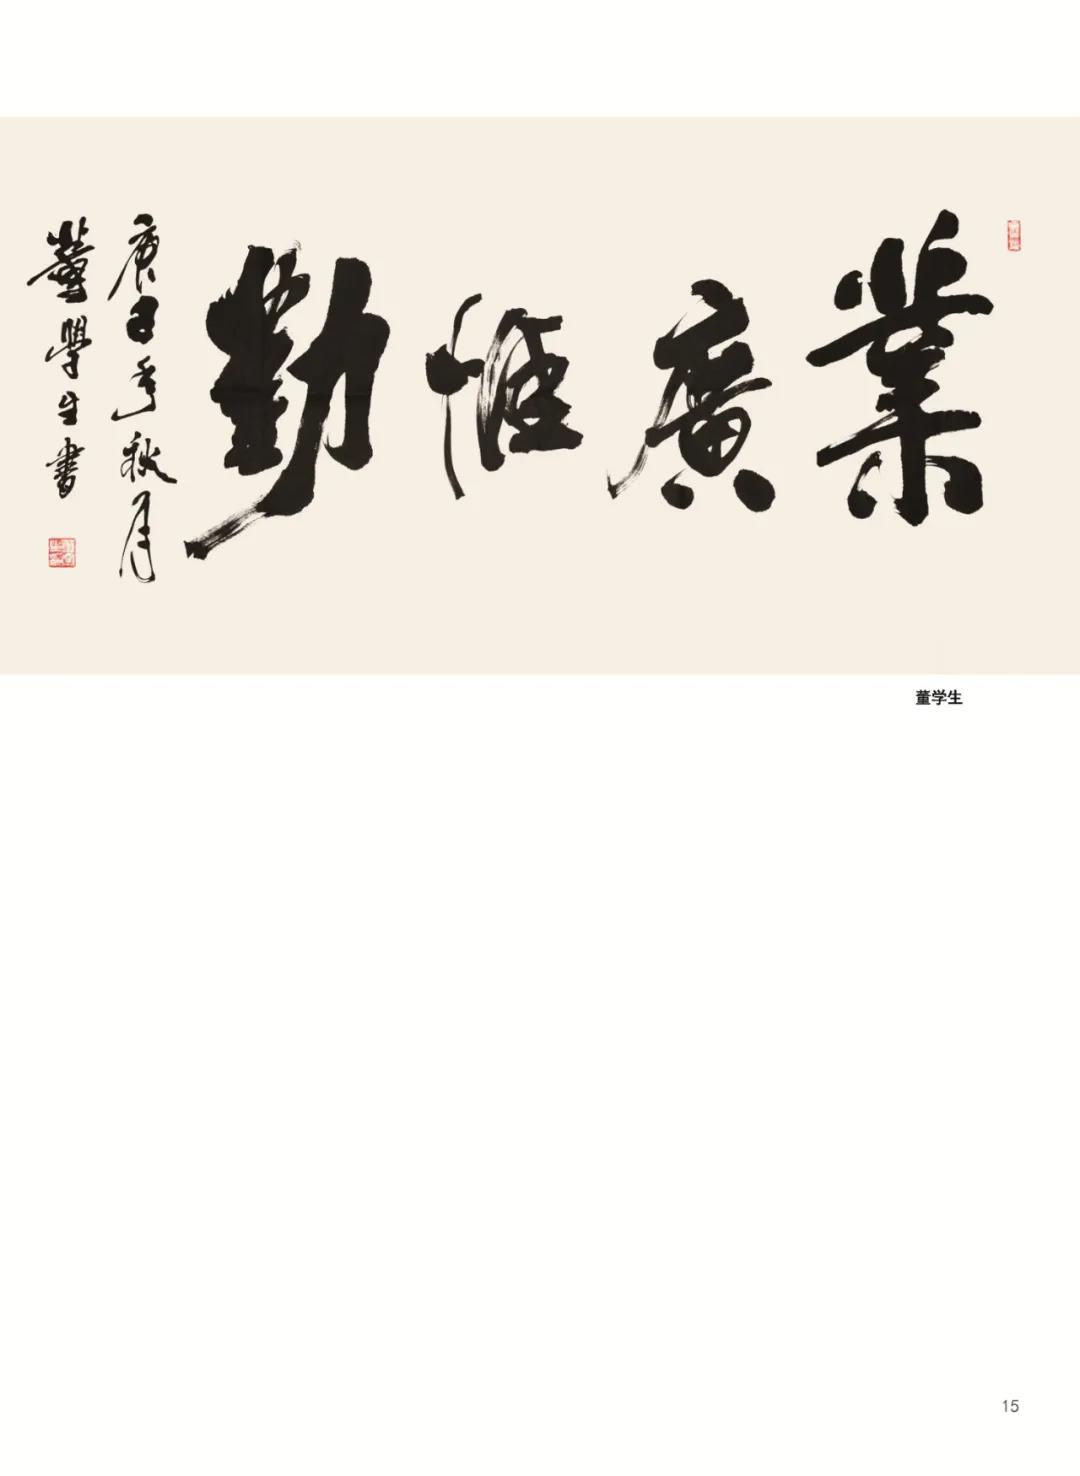 業廣惟勤
庚子年秋月
董學生書
董学生
15